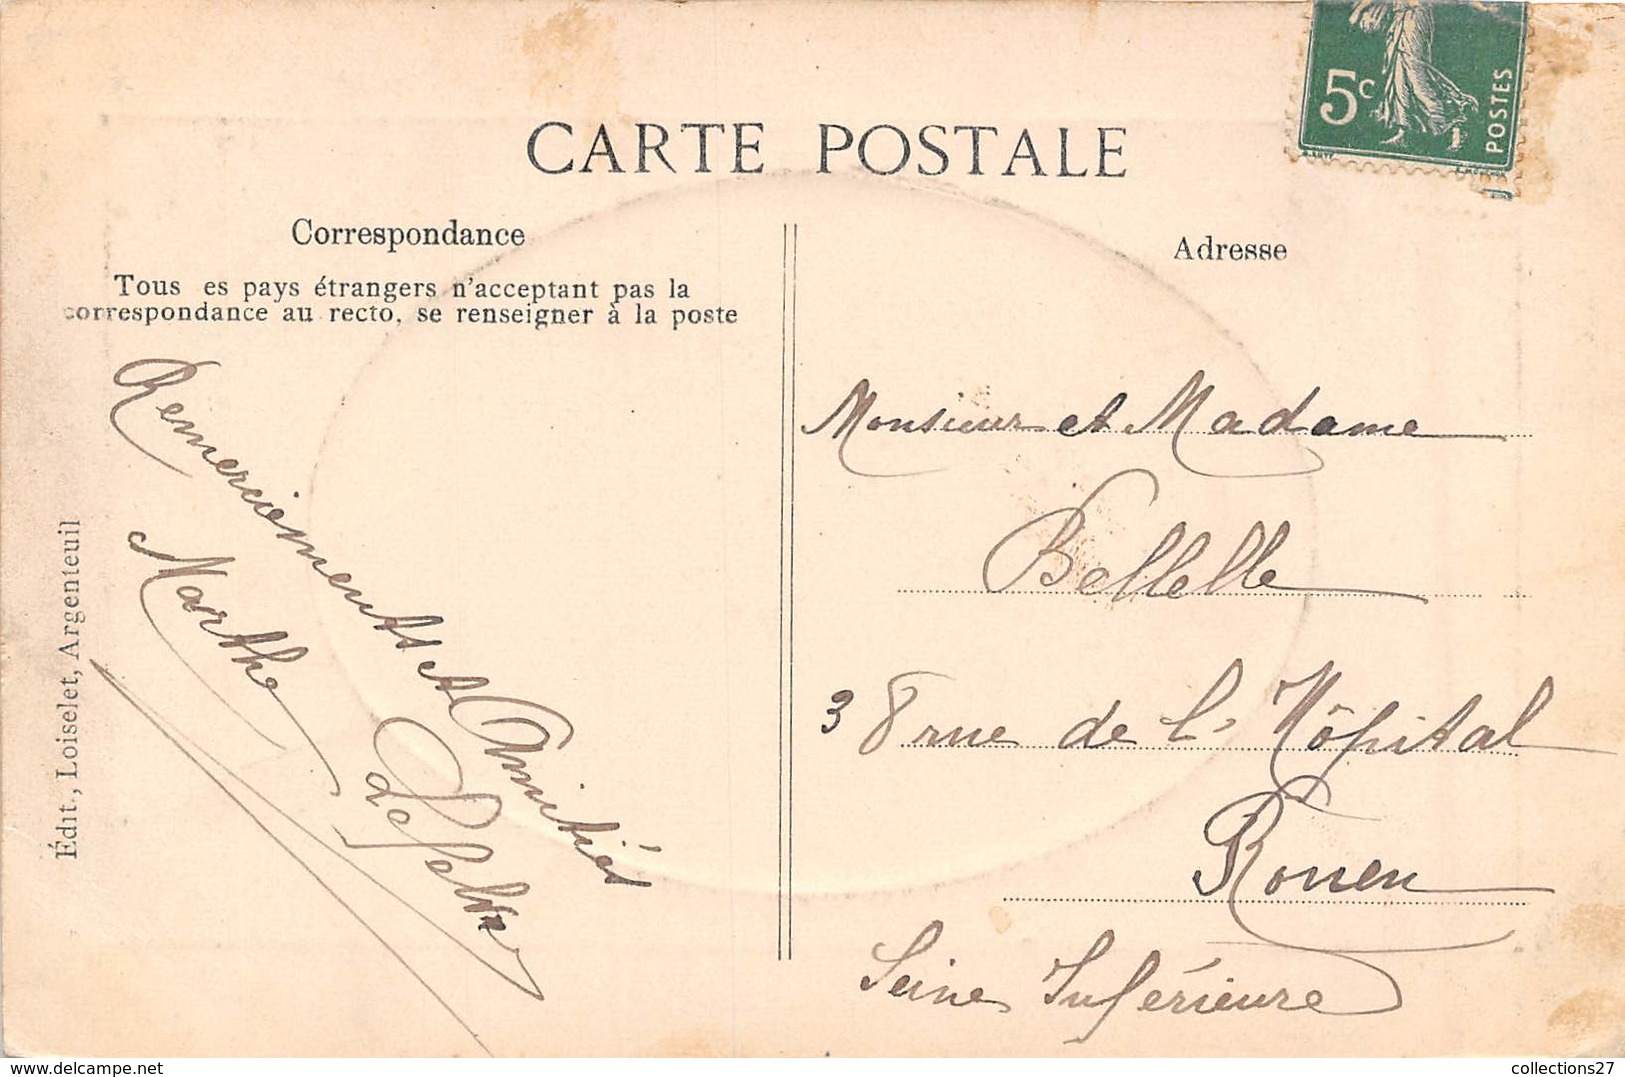 CARTE POSTALE
5c
POSTES
Correspondance
Tous es pays étrangers n'acceptant pas la
correspondance au recto, se renseigner à la poste
Remerciements et Amitiés
Marthe
Édit., Loiselet, Argenteuil
Adresse
Monsieur et Madame
Bellelle
38 rue de l'Hôpital
Rouen
Seine Inférieure
www.delcampe.net
collections27